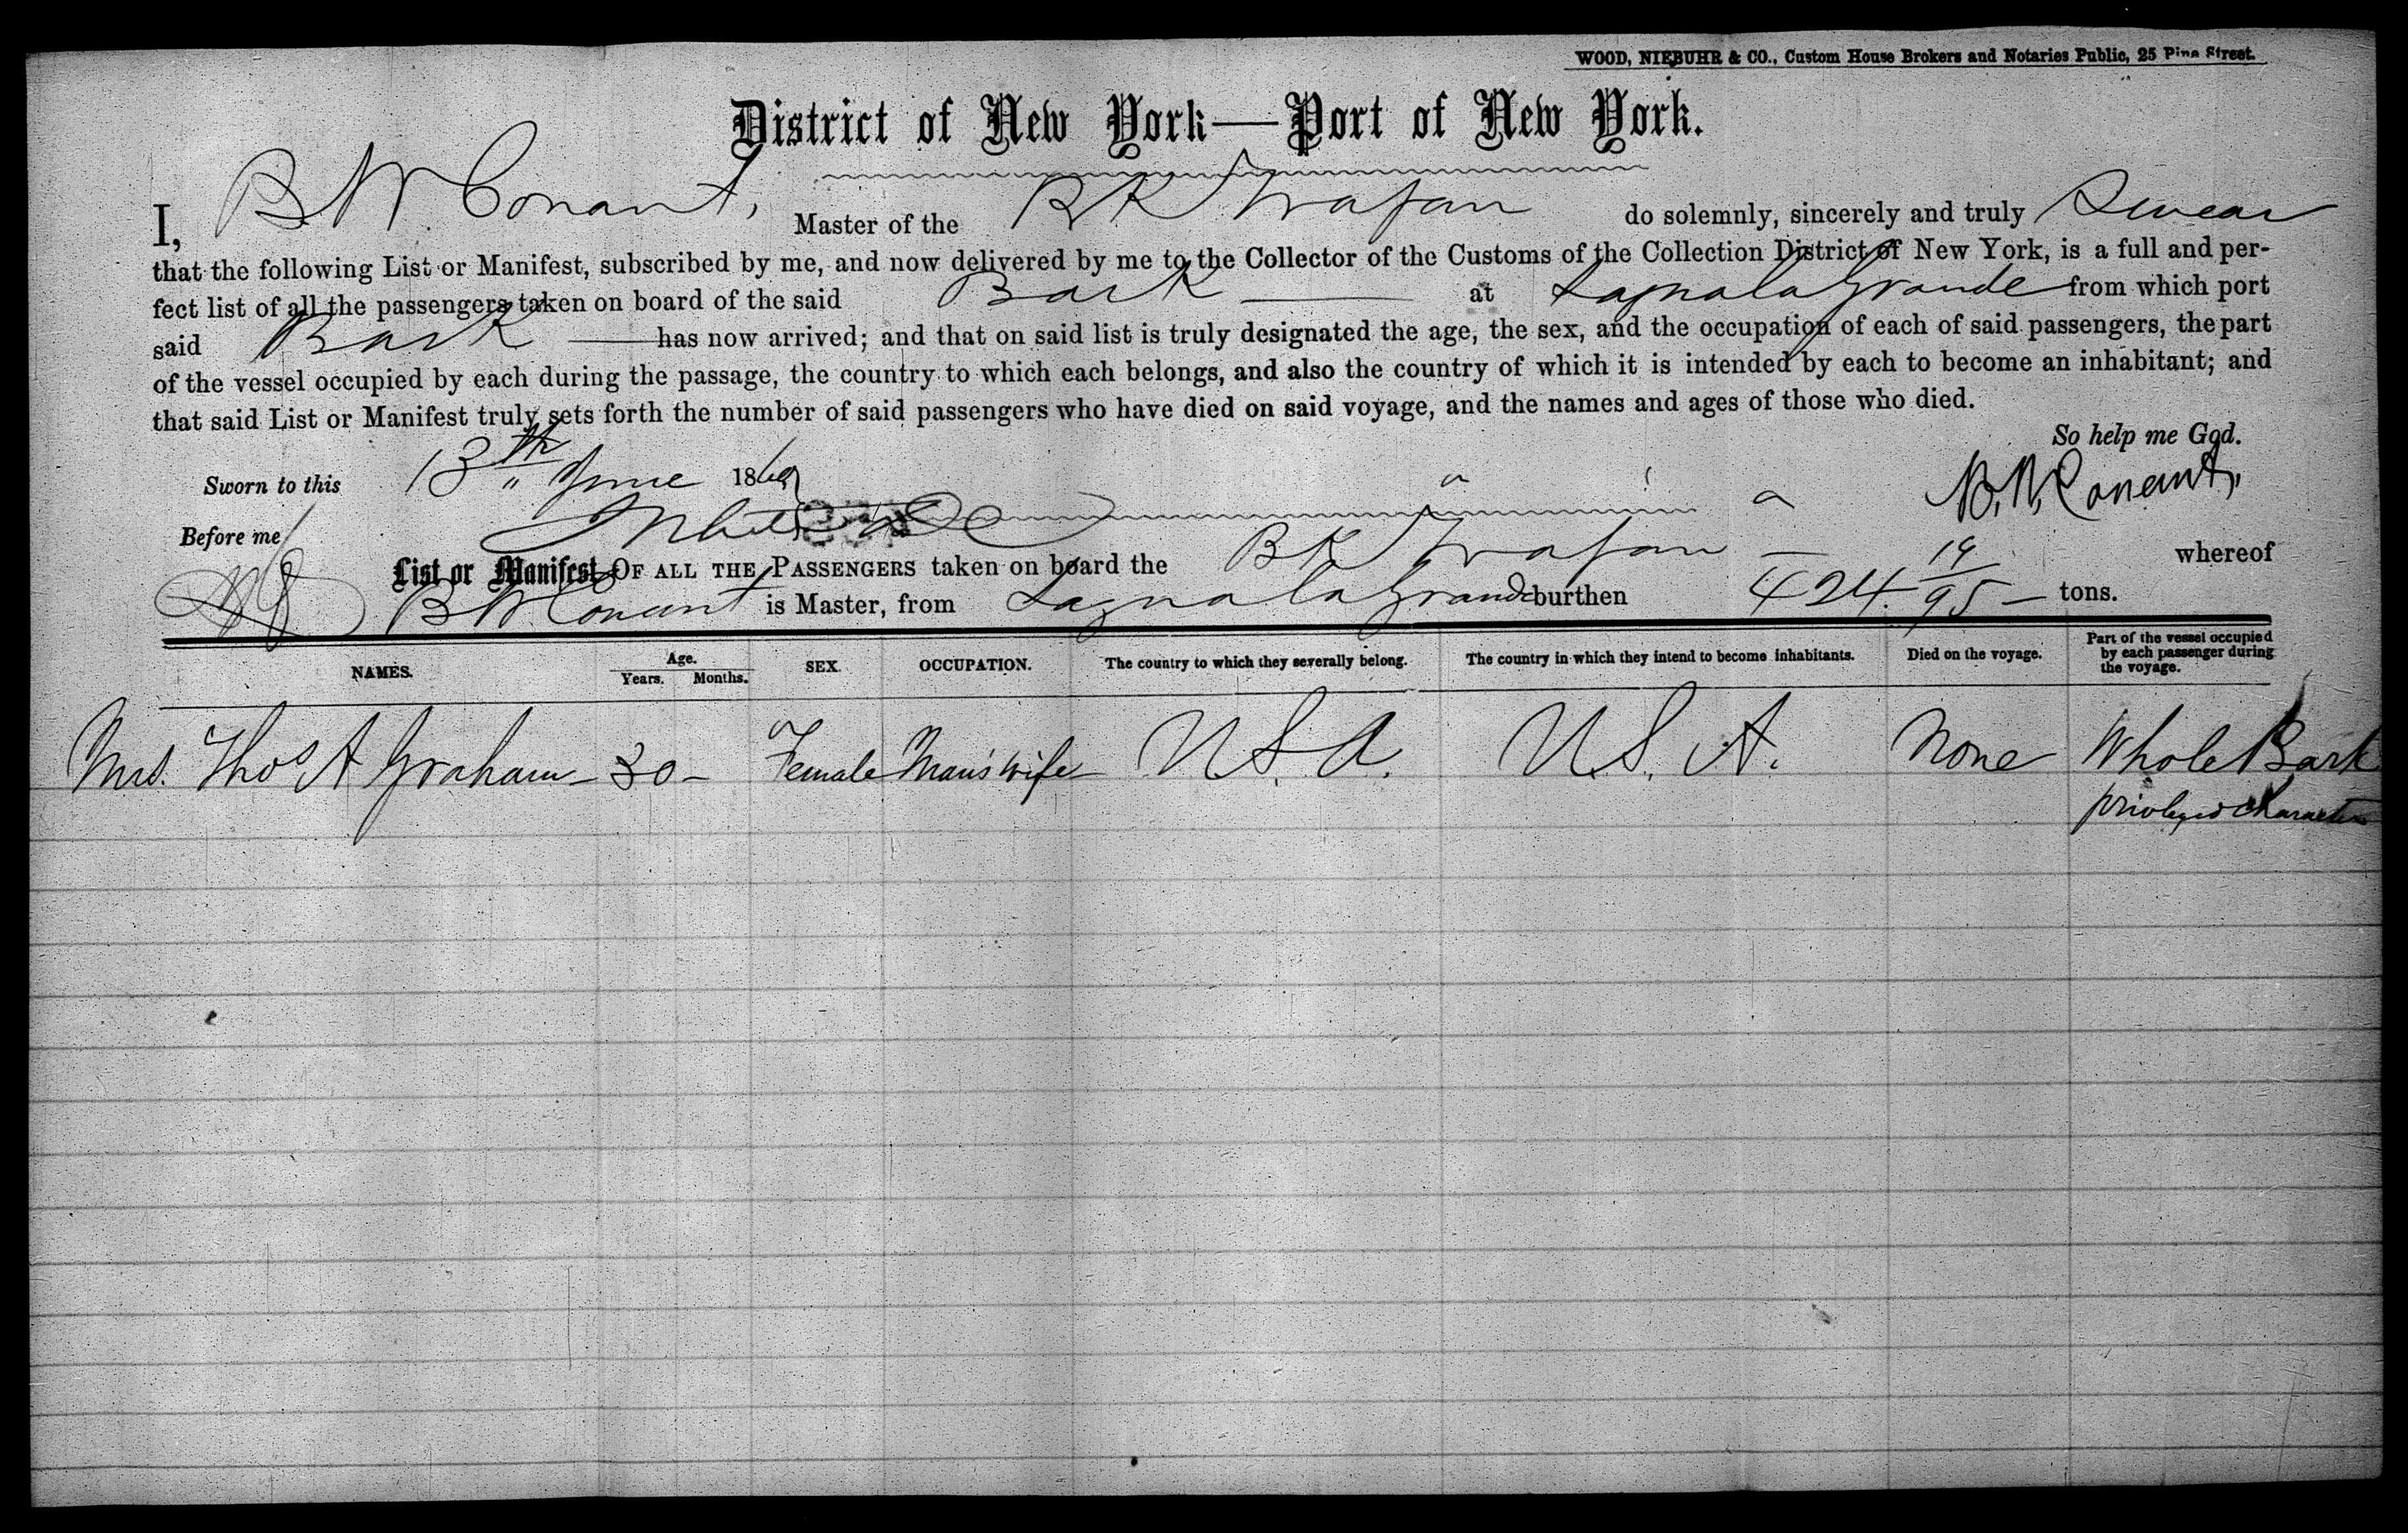 WOOD, NIEBUHR & CO., Custom House Brokers and Notaries Public, 25 Pine Street.
District of New York—Port of New York.
I, B W Conant, Master of the BK Trafan do solemnly, sincerely and truly Swear
that the following List or Manifest, subscribed by me, and now delivered by me to the Collector of the Customs of the Collection District of New York, is a full and per-
fect list of all the passengers taken on board of the said Bark — at Lagnala Grande from which port
said Bark — has now arrived; and that on said list is truly designated the age, the sex, and the occupation of each of said passengers, the part
of the vessel occupied by each during the passage, the country to which each belongs, and also the country of which it is intended by each to become an inhabitant; and
that said List or Manifest truly sets forth the number of said passengers who have died on said voyage, and the names and ages of those who died.
So help me God.
Sworn to this 13th June 1869
B. W. Conant,
Before me
List or Manifest OF ALL THE PASSENGERS taken on board the BK Trafan — whereof
B W Conant is Master, from Lagnala Grande burthen 424. 19/95 — tons.
NAMES. Age. Years. Months. SEX. OCCUPATION. The country to which they severally belong. The country in which they intend to become inhabitants. Died on the voyage. Part of the vessel occupied by each passenger during the voyage.
Mrs. Thos A Graham — 30 — Female Man's wife U.S.A. U.S.A. None Whole Bark
privleged character